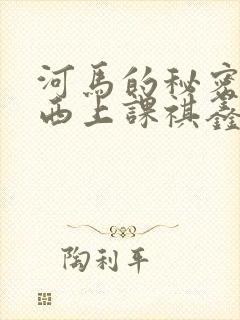 河馬的秘密
西上課祺鑫
陶利平